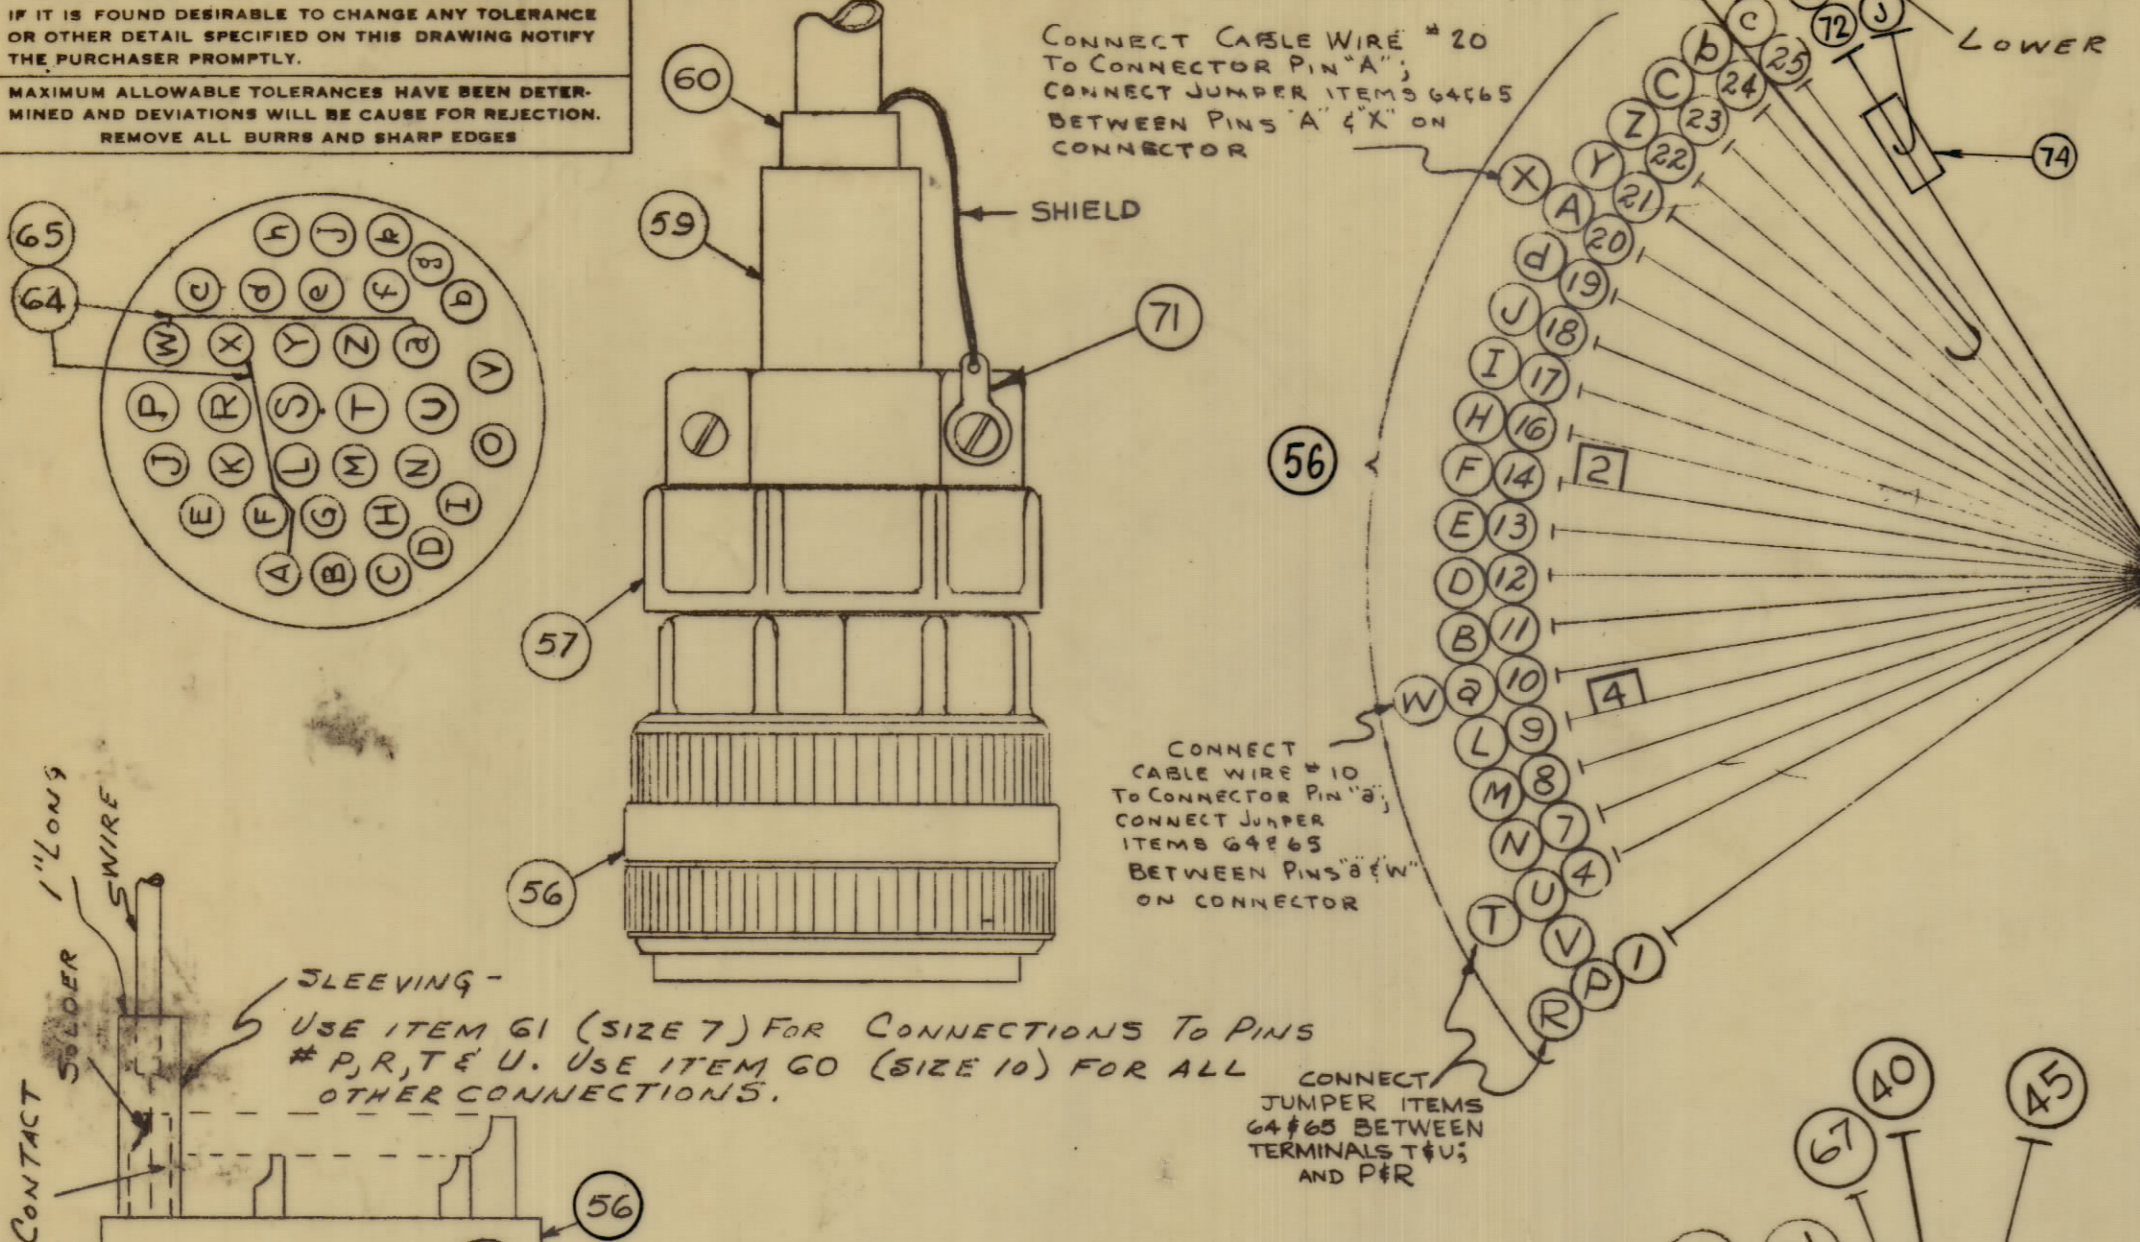 IF IT IS FOUND DESIRABLE TO CHANGE ANY TOLERANCE
OR OTHER DETAIL SPECIFIED ON THIS DRAWING NOTIFY
THE PURCHASER PROMPTLY.
MAXIMUM ALLOWABLE TOLERANCES HAVE BEEN DETER-
MINED AND DEVIATIONS WILL BE CAUSE FOR REJECTION.
REMOVE ALL BURRS AND SHARP EDGES
65
64
h J k g
c d e f b
W X Y Z a
V
P R S T U
O
J K L M N
E F G H I
A B C D
60
59
SHIELD
71
57
56
CONNECT CABLE WIRE # 20
TO CONNECTOR PIN "A";
CONNECT JUMPER ITEMS 64&65
BETWEEN PINS "A" & "X" ON
CONNECTOR
LOWER
72 J
74
c 25
b 24
C 23
Z 22
Y 21
X A 20
d 19
J 18
I 17
H 16
F 14
E 13
D 12
B 11
W a 10
L 9
M 8
N 7
T U 4
V
R P 1
2
4
56
CONNECT
CABLE WIRE # 10
TO CONNECTOR PIN "a";
CONNECT JUMPER
ITEMS 64&65
BETWEEN PINS "a" & "W"
ON CONNECTOR
CONNECT
JUMPER ITEMS
64&65 BETWEEN
TERMINALS T&U;
AND P&R
1" LONG
WIRE
SOLDER
CONTACT
SLEEVING -
USE ITEM 61 (SIZE 7) FOR CONNECTIONS TO PINS
# P,R,T & U. USE ITEM 60 (SIZE 10) FOR ALL
OTHER CONNECTIONS.
56
67
40
45